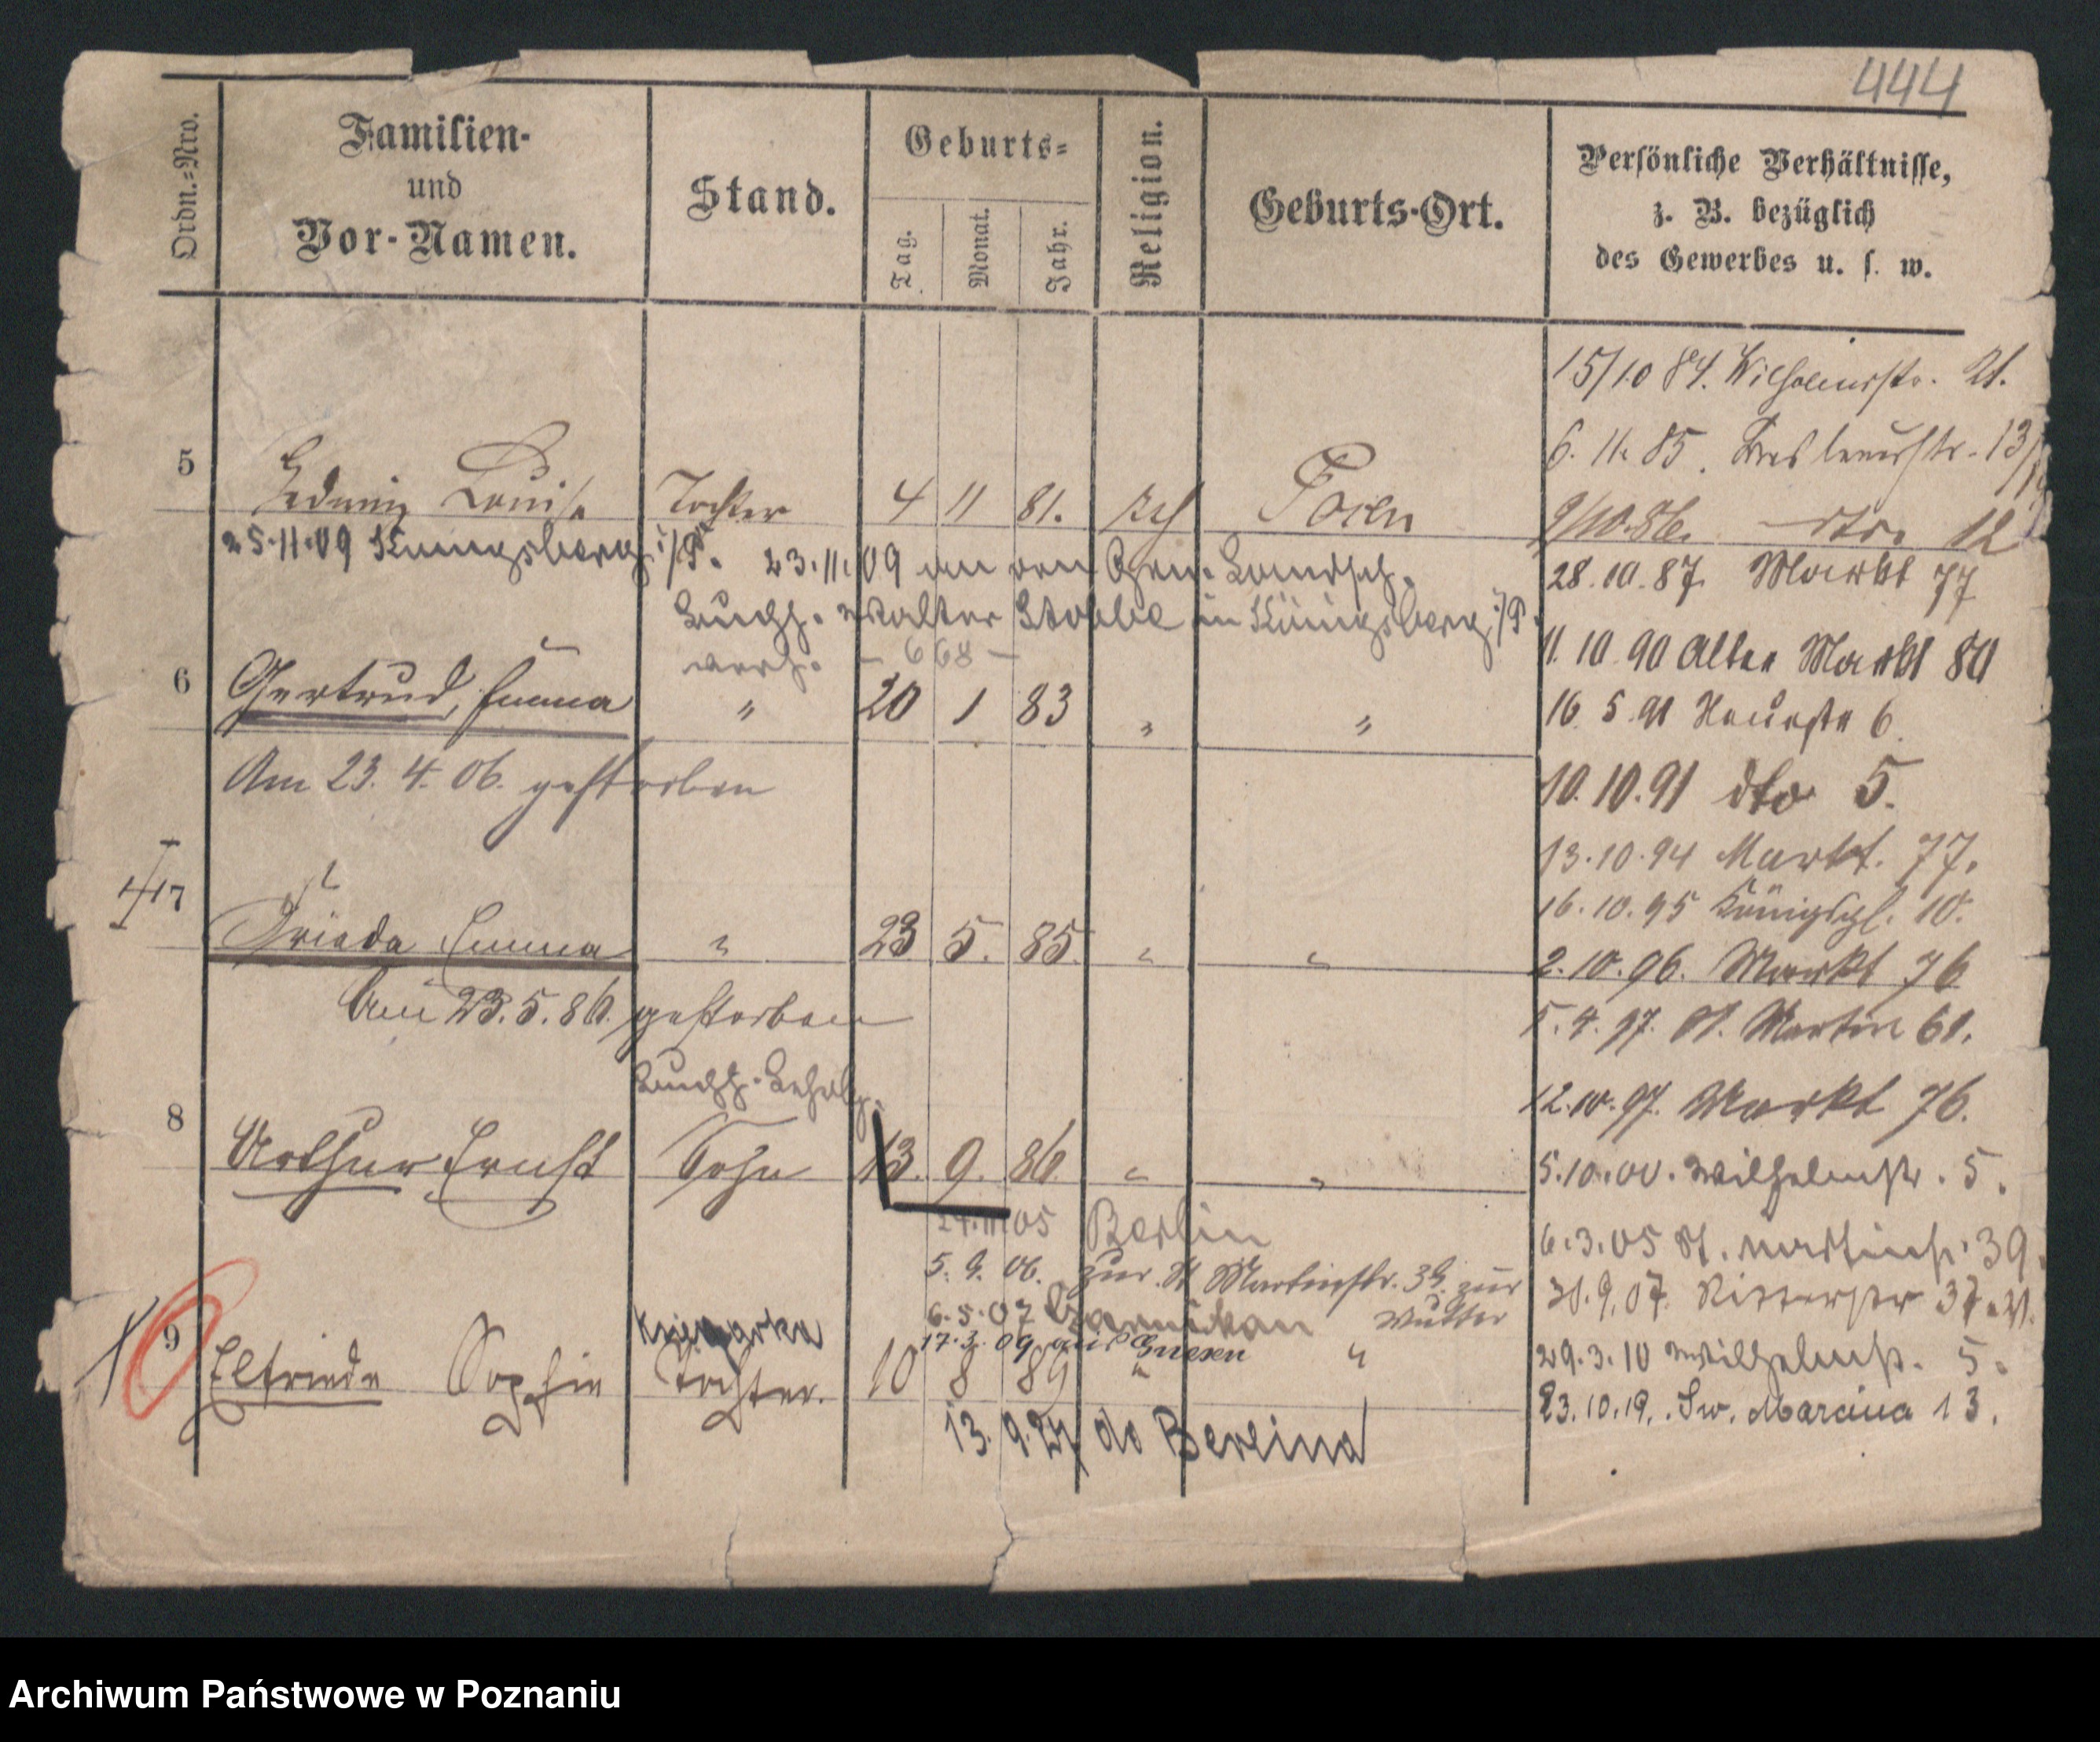 444
Ordn.=Nro.
Familien-
und
Vor-Namen.
Stand.
Geburts=
Tag.
Monat.
Jahr.
Religion.
Geburts-Ort.
Persönliche Verhältnisse,
z. B. bezüglich
des Gewerbes u. s. w.
15/10 84. Wilhelmstr. 21.
6. 11. 85. Breslauerstr. 13/14
5 Hedwig Louise Tochter 4 11 81. Posen
9/10.86. dto. 12
25.11.09 Königsberg i/P. 23.11.09 an den Gen. Landsch.
28.10.87. Markt 77
Buchh. Walter Stobbe in Königsberg i/P.
verh. – 668 –
11.10.90 Alter Markt 80
6 Gertrud, Emma " 20 1 83 " "
16.5.91 Neuestr 6.
Am 23.4.06. gestorben
10.10.91 dto 5.
13.10.94 Markt. 77.
16.10.95 Königspl. 10.
7 Frieda Emma " 23 5. 85. " "
2.10.96. Markt 76
Am 23.5.86. gestorben
5.4.97. St. Martin 61.
Buchh.-Lehrlg.
12.10.97. Markt 76.
8 Arthur Ernst Sohn 13. 9. 86. " "
5.10.00. Wilhelmstr. 5.
24.11.05 Berlin
6.3.05 St. Martinstr. 39.
5.9.06. zur. St Martinstr. 39 zur
Mutter
6.5.07 Czarnikau
17.3.09 aus Gnesen
29.3.10 Wilhelmstr. 5.
9 Elfriede Sophie Tochter. 10 8 89 " "
23.10.19. Św. Marcina 13.
13.9.24 do Berlina
Archiwum Państwowe w Poznaniu